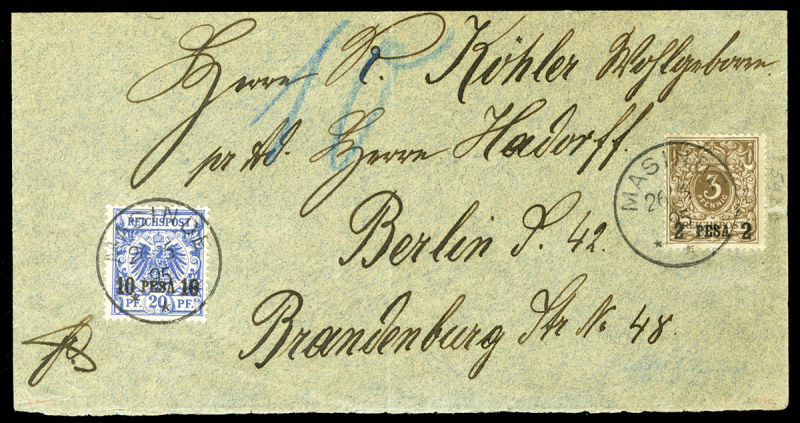 Herrn R. Köhler Wohlgeboren.
pr Ad. Herrn Hadorff.
Berlin S. 42.
Brandenburg Str No. 48.
10
MASINDE
26 3
95
REICHSPOST
10 PESA 10
PF. 20 PF.
MASINDE
26 3
95
3
PFENNIG
2 PESA 2